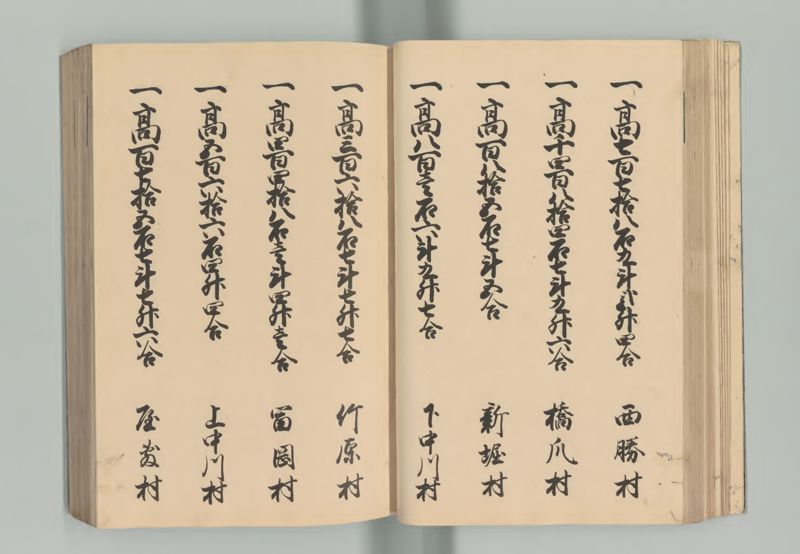 一高七百七拾八石九斗弐升四合　西勝村
一高千四百八拾四石七斗九升六合　橋爪村
一高百八拾五石七斗五合　新堀村
一高八百壱石六斗九升七合　下中川村
一高三百六拾八石七斗七升七合　竹原村
一高四百四拾八石壱斗四升壱合　冨岡村
一高五百六拾六石四升四合　上中川村
一高百七拾五石七斗七升六合　屋敷村